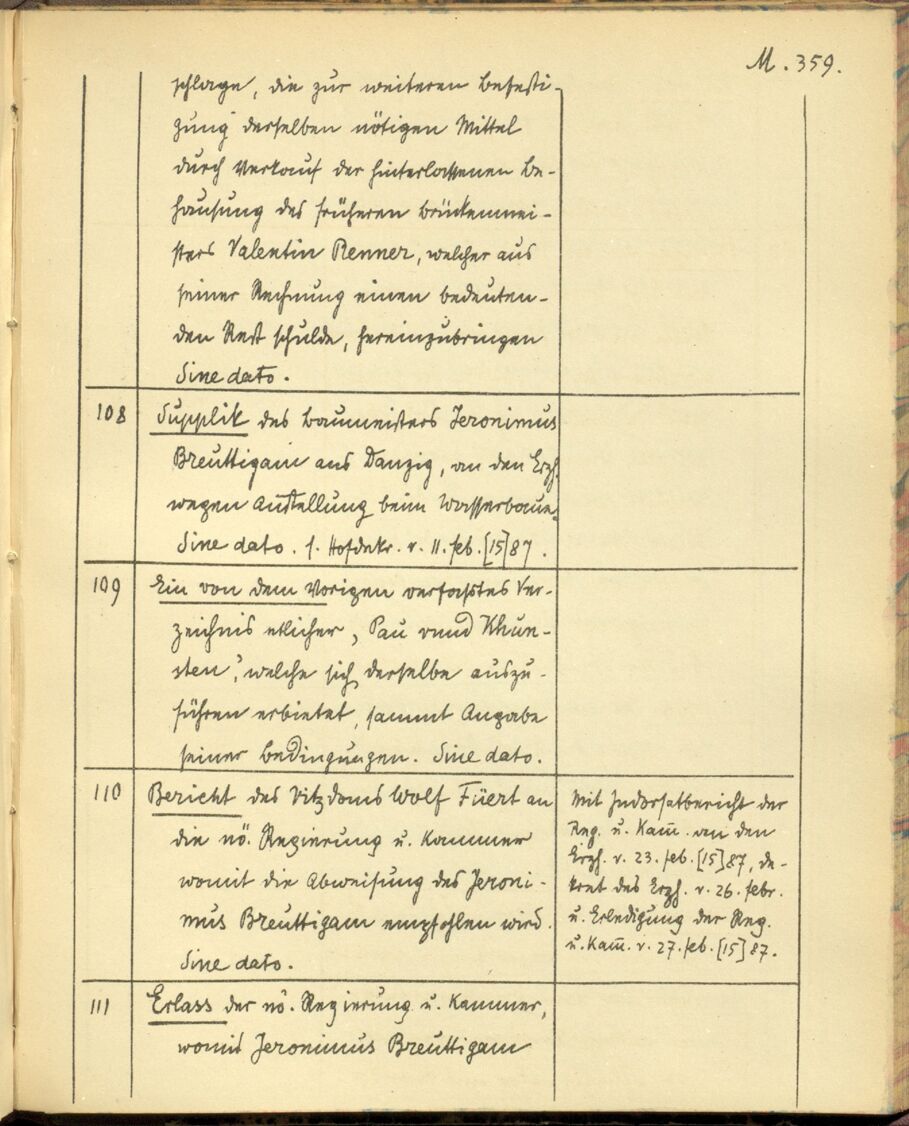 M. 359.
schlage, die zur weiteren Befesti-
gung derselben nötigen Mittel
durch Verkauf der hinterlassenen Be-
hausung des früheren Brückenmei-
sters Valentin Renner, welcher aus
seiner Rechnung einen bedeuten-
den Rest schulde, hereinzubringen
Sine dato.
108 Supplik des Baumeisters Jeronimus
Breuttigam aus Danzig, an den Erzh.
wegen Anstellung beim Wasserbaue.
Sine dato. s. Hofdekr. v. 11. feb. [15]87.
109 Ein von dem Vorigen verfasstes Ver-
zeichnis etlicher „Pau vnnd Khun-
sten", welche sich derselbe auszu-
führen erbietet, sammt Angabe
seiner Bedingungen. Sine dato.
110 Bericht des Vitzdoms Wolf Füert an
die nö. Regierung u. Kammer
womit die Abweisung des Jeroni-
mus Breuttigam empfohlen wird.
Sine dato.
Mit Indorsatbericht der
Reg. u. Kam̅. an den
Erzh. v. 23. feb. [15]87, De-
kret des Erzh. v. 26. febr.
u. Erledigung der Reg.
u. Kam̅. v. 27. feb. [15]87.
111 Erlass der nö. Regierung u. Kammer,
womit Jeronimus Breuttigam